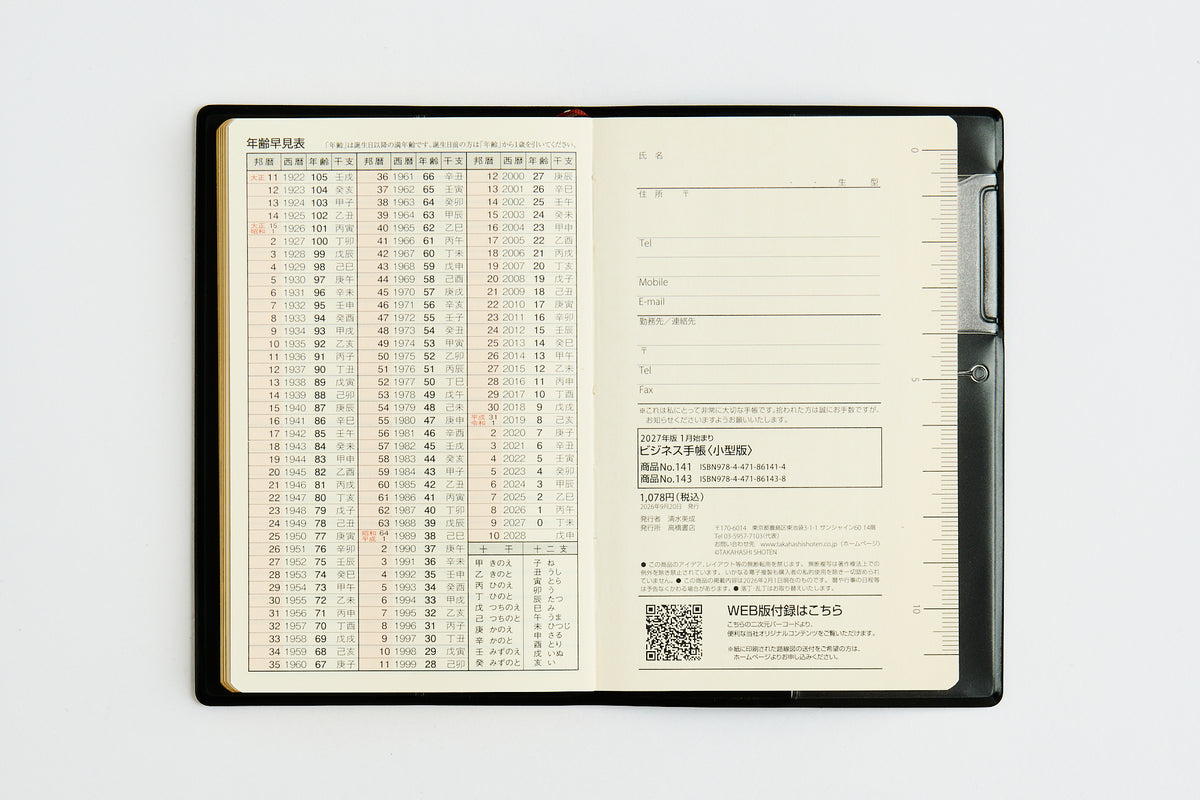 年齢早見表 「年齢」は誕生日以降の満年齢です。誕生日前の方は「年齢」から1歳を引いてください。
邦暦 西暦 年齢 干支
大正 11 1922 105 壬戌
12 1923 104 癸亥
13 1924 103 甲子
14 1925 102 乙丑
大正 15 昭和 1 1926 101 丙寅
2 1927 100 丁卯
3 1928 99 戊辰
4 1929 98 己巳
5 1930 97 庚午
6 1931 96 辛未
7 1932 95 壬申
8 1933 94 癸酉
9 1934 93 甲戌
10 1935 92 乙亥
11 1936 91 丙子
12 1937 90 丁丑
13 1938 89 戊寅
14 1939 88 己卯
15 1940 87 庚辰
16 1941 86 辛巳
17 1942 85 壬午
18 1943 84 癸未
19 1944 83 甲申
20 1945 82 乙酉
21 1946 81 丙戌
22 1947 80 丁亥
23 1948 79 戊子
24 1949 78 己丑
25 1950 77 庚寅
26 1951 76 辛卯
27 1952 75 壬辰
28 1953 74 癸巳
29 1954 73 甲午
30 1955 72 乙未
31 1956 71 丙申
32 1957 70 丁酉
33 1958 69 戊戌
34 1959 68 己亥
35 1960 67 庚子
邦暦 西暦 年齢 干支
36 1961 66 辛丑
37 1962 65 壬寅
38 1963 64 癸卯
39 1964 63 甲辰
40 1965 62 乙巳
41 1966 61 丙午
42 1967 60 丁未
43 1968 59 戊申
44 1969 58 己酉
45 1970 57 庚戌
46 1971 56 辛亥
47 1972 55 壬子
48 1973 54 癸丑
49 1974 53 甲寅
50 1975 52 乙卯
51 1976 51 丙辰
52 1977 50 丁巳
53 1978 49 戊午
54 1979 48 己未
55 1980 47 庚申
56 1981 46 辛酉
57 1982 45 壬戌
58 1983 44 癸亥
59 1984 43 甲子
60 1985 42 乙丑
61 1986 41 丙寅
62 1987 40 丁卯
63 1988 39 戊辰
昭和 64 平成 1 1989 38 己巳
2 1990 37 庚午
3 1991 36 辛未
4 1992 35 壬申
5 1993 34 癸酉
6 1994 33 甲戌
7 1995 32 乙亥
8 1996 31 丙子
9 1997 30 丁丑
10 1998 29 戊寅
11 1999 28 己卯
邦暦 西暦 年齢 干支
12 2000 27 庚辰
13 2001 26 辛巳
14 2002 25 壬午
15 2003 24 癸未
16 2004 23 甲申
17 2005 22 乙酉
18 2006 21 丙戌
19 2007 20 丁亥
20 2008 19 戊子
21 2009 18 己丑
22 2010 17 庚寅
23 2011 16 辛卯
24 2012 15 壬辰
25 2013 14 癸巳
26 2014 13 甲午
27 2015 12 乙未
28 2016 11 丙申
29 2017 10 丁酉
30 2018 9 戊戌
平成 31 令和 1 2019 8 己亥
2 2020 7 庚子
3 2021 6 辛丑
4 2022 5 壬寅
5 2023 4 癸卯
6 2024 3 甲辰
7 2025 2 乙巳
8 2026 1 丙午
9 2027 0 丁未
10 2028 戊申
十干
甲 きのえ
乙 きのと
丙 ひのえ
丁 ひのと
戊 つちのえ
己 つちのと
庚 かのえ
辛 かのと
壬 みずのえ
癸 みずのと
十二支
子 ね
丑 うし
寅 とら
卯 う
辰 たつ
巳 み
午 うま
未 ひつじ
申 さる
酉 とり
戌 いぬ
亥 い
氏 名
・ ・ 生 型
住 所 〒
Tel
Mobile
E-mail
勤務先／連絡先
〒
Tel
Fax
※これは私にとって非常に大切な手帳です。拾われた方は誠にお手数ですが、
お知らせくださいますようお願いいたします。
2027年版 1月始まり
ビジネス手帳〈小型版〉
商品No.141 ISBN978-4-471-86141-4
商品No.143 ISBN978-4-471-86143-8
1,078円(税込)
2026年9月20日 発行
発行者 清水美成
発行所 高橋書店
〒170-6014 東京都豊島区東池袋3-1-1 サンシャイン60 14階
Tel 03-5957-7103(代表)
お問い合わせ先 www.takahashishoten.co.jp (ホームページ)
©TAKAHASHI SHOTEN
● この商品のアイデア、レイアウト等の無断転用を禁じます。無断複写は著作権法上での
例外を除き禁止されています。いかなる電子複製も購入者の私的使用を除き一切認められ
ていません。● この商品の掲載内容は2026年2月1日現在のものです。暦や行事の日程等
は予告なくかわる場合があります。● 落丁・乱丁はお取り替えいたします。
WEB版付録はこちら
こちらの二次元バーコードより、
便利な当社オリジナルコンテンツをご覧いただけます。
※紙に印刷された路線図の送付をご希望の方は、
ホームページよりお申し込みください。
0
5
10